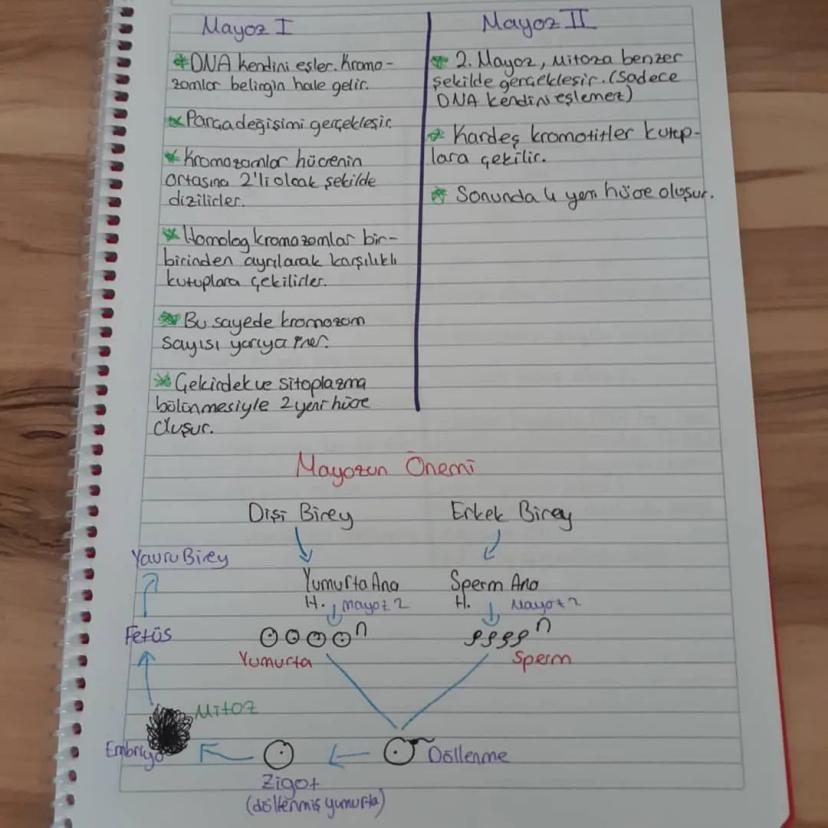 Mayoz I
* DNA kendini eşler. Kromo-
zomlar belirgin hale gelir.
* Parça değişimi gerçekleşir
* Kromozomlar hücrenin
ortasına 2'li olcak şekilde
dizilirler.
* Homolog kromozomlar bir-
birinden ayrılarak karşılıklı
kutuplara çekilirler.
* Bu sayede kromozom
sayısı yarıya iner.
* Çekirdek ve sitoplazma
bölünmesiyle 2 yeni hücre
oluşur.
Mayoz II
* 2. Mayoz, mitoza benzer
şekilde gerçekleşir. (Sadece
DNA kendini eşlemez)
* Kardeş kromotitler kutup-
lara çekilir.
* Sonunda 4 yeni hücre oluşur.
Mayozun Önemi
Dişi Birey Erkek Birey
Yavru Birey
Yumurta Ana Sperm Ana
H. mayoz 2 H. Mayoz 2
Fetüs n n
Yumurta Sperm
Mitoz
Embriyo Döllenme
Zigot
(döllenmiş yumurta)